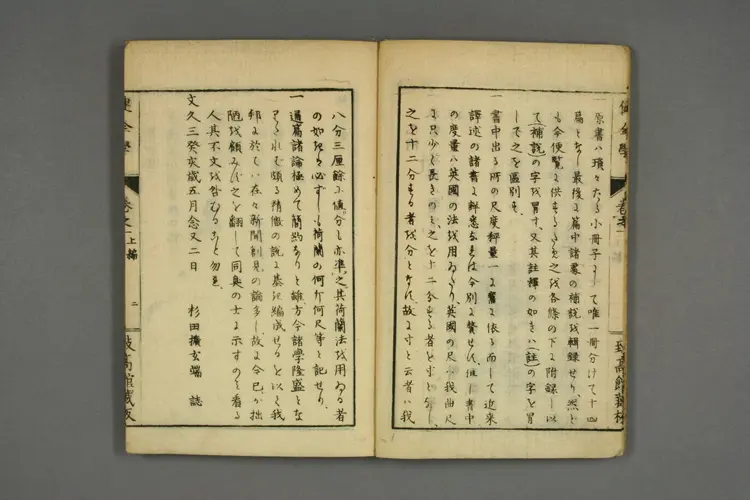 一 原書ハ瑣々たる小冊子にして唯一冊分けて十四
易となし最後に篇中諸篇の補説を輯録せり然と
も今便覧に供するため之を各條の下に附録し以
て(補説)の字を冒す又其註釋の如きハ(註)の字を冒
して之を區別す
一 書中出る所の尺度秤量一に舊に依る而して近来
譯述の諸書に
の度量ハ英國の法を用ゐたり英國の尺ハ我曲尺
より只少し長きのミ之を十二分せる者を寸となし
之を十二分せる者を分となす故に寸と云者ハ我
八分三厘餘に値る分も亦準之其荷蘭法を用ゐる者
の如きハ必ずしも荷蘭の何寸何尺等と記せり
一 通篇諸論極めて簡約なりと雖方今諸學隆盛とな
られし頗る精微の説に基き編成せるを以て我
邦に於てハ在々新聞創見の論多し故に今己が拙
陋を顧みず之を翻して同臭の士に示すのミ看る
人其不文を咎むること勿れ
文久三癸亥歳五月念又二日
杉田擴玄端 誌
健全學
卷之一
上編
二
致高館蔵版